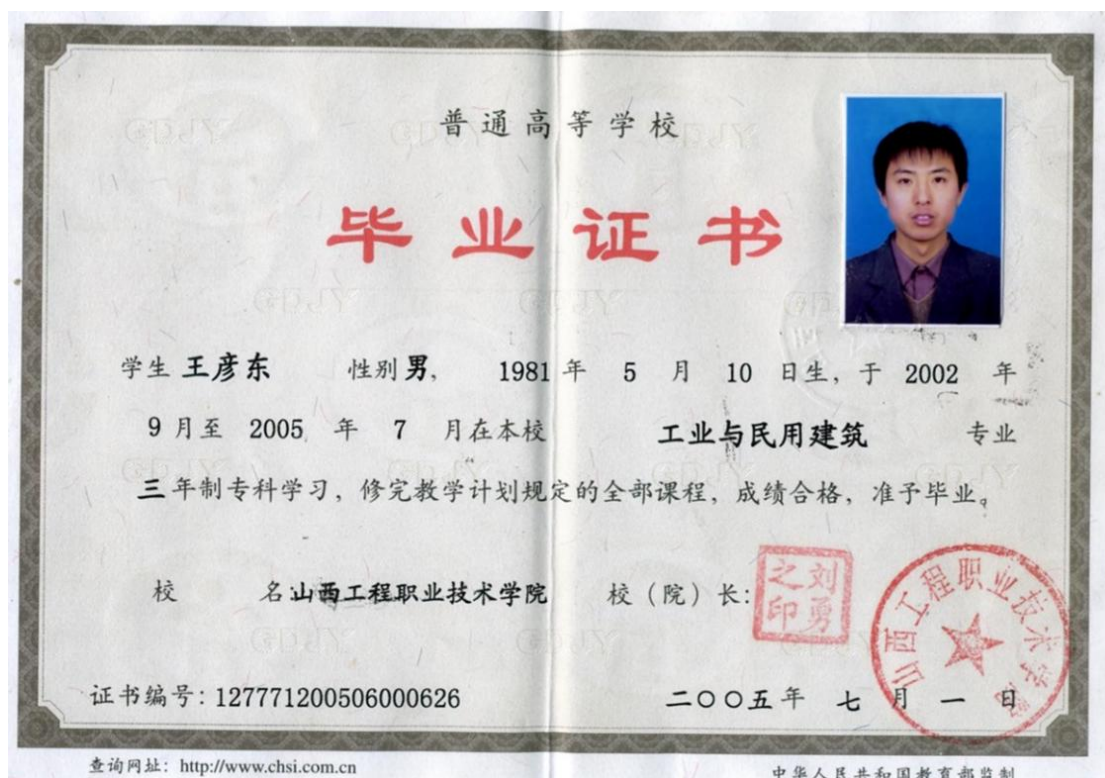 普通高等学校
毕业证书
学生 王彦东 性别 男, 1981 年 5 月 10 日生, 于 2002 年
9 月至 2005 年 7 月在本校 工业与民用建筑 专业
三 年制专科学习, 修完教学计划规定的全部课程, 成绩合格, 准予毕业。
校 名:山西工程职业技术学院 校(院)长:
刘勇之印
山西工程职业技术学院
证书编号: 127771200506000626 二〇〇五年 七 月 一 日
查询网址: http://www.chsi.com.cn 中华人民共和国教育部监制